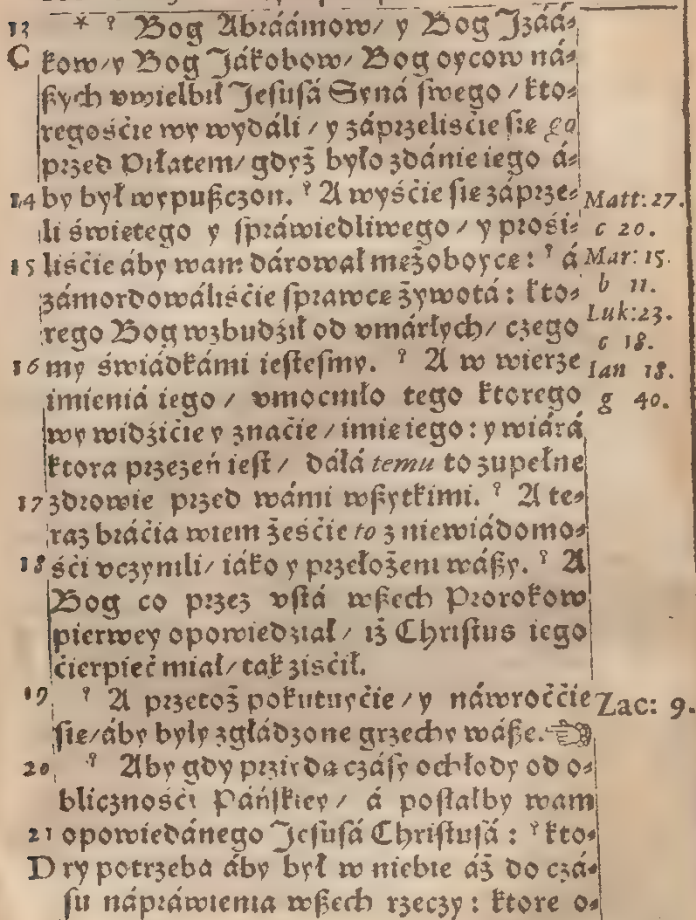 13 * ꝰ Bog Abráámow/ y Bog Jzáá⸗
C kow/ y Bog Jákobow/ Bog oycow ná⸗
ßych vwielbił Jeſuſá Syná ſwego / kto⸗
regośćie wy wydáli / y záprzeliśćie ſie go
przed Piłatem/ gdyż było zdánie iego á⸗
14 by był wypußczon. ꝰ A wyśćie ſie záprze⸗ Matt: 27.
li świetego y ſpráwiedliwego / y prośi⸗ c 20.
15 liśćie áby wam dárował mężoboyce : ꝰ á Mar: 15.
zámordowáliśćie ſprawce żywotá : kto⸗ b 11.
rego Bog wzbudźił od vmárłych/ czego Luk: 23.
c 18.
16 my świádkámi ieſteſmy. ꝰ A w wierze Ian 18.
imieniá iego / vmocniło tego ktorego g 40.
wy widźićie y znaćie / imie iego : y wiárá
ktora przezeń ieſt / dáłá temu to zupełne
17 zdrowie przed wámi wßytkimi. ꝰ A te⸗
raz bráćia wiem żeśćie to z niewiádomo⸗
18 śći vczynili/ iáko y przełożeni wáßy. ꝰ A
Bog co przez vſtá wßech Prorokow
pierwey opowiedział / iż Chriſtus iego
ćierpieć miał/ tak ziśćił.
19 ꝰ A przetoż pokutuyćie / y náwroććie Zac: 9.
ſie/ áby były zgłádzone grzechy wáße. ☜
20 ꝰ Aby gdy przirda czáſy ochłody od o⸗
blicznośći Páńſkiey / á poſtałby wam
21 opowiedánego Jeſuſá Chriſtuſá : ꝰ kto⸗
D ry potrzebá áby był w niebie áż do czá⸗
ſu nápráwienia wßech rzeczy : ktore o⸗